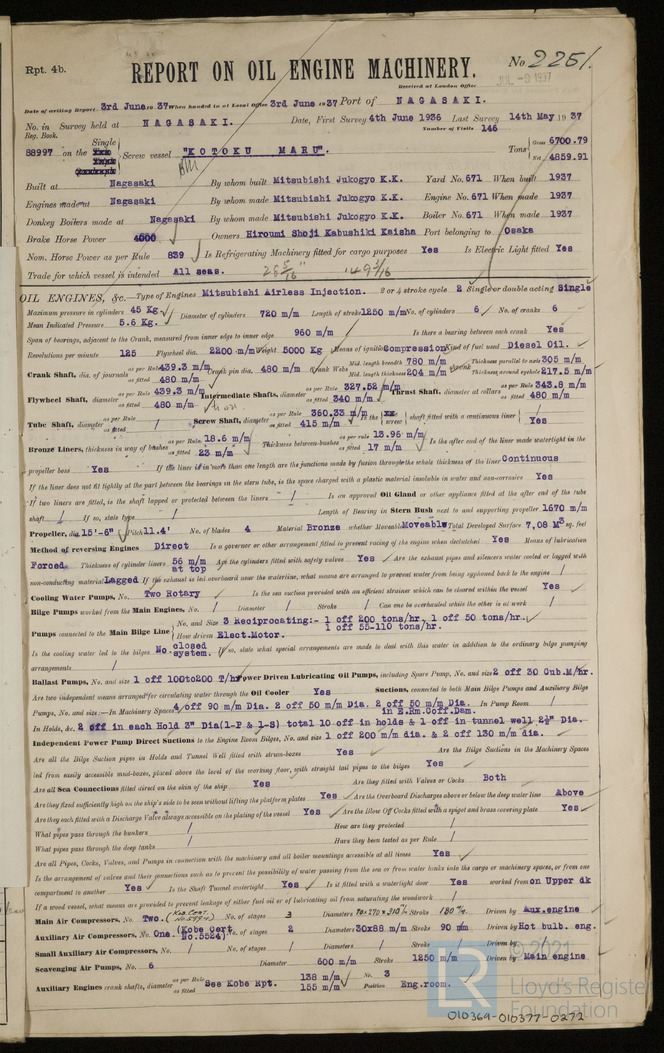 Rpt. 4b.
REPORT ON OIL ENGINE MACHINERY.
No 2251.
Received at London Office
JUL -9 1937
Date of writing Report 3rd June 1937 When handed in at Local Office 3rd June 1937 Port of NAGASAKI.
No. in Survey held at NAGASAKI. Date, First Survey 4th June 1936 Last Survey 14th May 1937
Reg. Book. Number of Visits 146
88997 on the Single Screw vessel "KOTOKU MARU". Tons Gross 6700.79 Net 4859.91
Built at Nagasaki By whom built Mitsubishi Jukogyo K.K. Yard No. 671 When built 1937
Engines made at Nagasaki By whom made Mitsubishi Jukogyo K.K. Engine No. 671 When made 1937
Donkey Boilers made at Nagasaki By whom made Mitsubishi Jukogyo K.K. Boiler No. 671 When made 1937
Brake Horse Power 4000 Owners Hiroumi Shoji Kabushiki Kaisha Port belonging to Osaka
Nom. Horse Power as per Rule 839 Is Refrigerating Machinery fitted for cargo purposes Yes Is Electric Light fitted Yes
Trade for which vessel is intended All seas.
OIL ENGINES, &c. Type of Engines Mitsubishi Airless Injection. 2 or 4 stroke cycle 2 Single or double acting Single
Maximum pressure in cylinders 45 Kg. Diameter of cylinders 720 m/m Length of stroke 1250 m/m No. of cylinders 6 No. of cranks 6
Mean Indicated Pressure 5.6 Kg.
Span of bearings, adjacent to the Crank, measured from inner edge to inner edge 960 m/m Is there a bearing between each crank Yes
Revolutions per minute 125 Flywheel dia. 2200 m/m Weight 5000 Kg Means of ignition Compression Kind of fuel used Diesel Oil.
Crank Shaft, dia. of journals as per Rule 439.3 m/m as fitted 480 m/m Crank pin dia. 480 m/m Crank Webs Mid. length breadth 780 m/m Mid. length thickness 204 m/m shrunk Thickness parallel to axis 305 m/m Thickness around eyehole 217.5 m/m
Flywheel Shaft, diameter as per Rule 439.3 m/m as fitted 480 m/m Intermediate Shafts, diameter as per Rule 327.52 m/m as fitted 340 m/m Thrust Shaft, diameter at collars as per Rule 343.8 m/m as fitted 480 m/m
Tube Shaft, diameter as per Rule / as fitted / Screw Shaft, diameter as per Rule 360.33 m/m as fitted 415 m/m Is the screw shaft fitted with a continuous liner / Yes
Bronze Liners, thickness in way of bushes as per Rule 18.6 m/m as fitted 23 m/m Thickness between bushes as per rule 13.96 m/m as fitted 17 m/m Is the after end of the liner made watertight in the
propeller boss Yes If the liner is in more than one length are the junctions made by fusion through the whole thickness of the liner Continuous
If the liner does not fit tightly at the part between the bearings in the stern tube, is the space charged with a plastic material insoluble in water and non-corrosive Yes
If two liners are fitted, is the shaft lapped or protected between the liners / Is an approved Oil Gland or other appliance fitted at the after end of the tube
shaft / If so, state type / Length of Bearing in Stern Bush next to and supporting propeller 1670 m/m
Propeller, dia. 15'-6" Pitch 11.4' No. of blades 4 Material Bronze whether Moveable Moveable Total Developed Surface 7.08 M² sq. feet
Method of reversing Engines Direct Is a governor or other arrangement fitted to prevent racing of the engine when declutched Yes Means of lubrication
Forced Thickness of cylinder liners 56 m/m at top Are the cylinders fitted with safety valves Yes Are the exhaust pipes and silencers water cooled or lagged with
non-conducting material Lagged If the exhaust is led overboard near the waterline, what means are arranged to prevent water from being syphoned back to the engine /
Cooling Water Pumps, No. Two Rotary Is the sea suction provided with an efficient strainer which can be cleared within the vessel Yes
Bilge Pumps worked from the Main Engines, No. / Diameter / Stroke / Can one be overhauled while the other is at work /
Pumps connected to the Main Bilge Line No. and Size 3 Reciprocating:- 1 off 200 tons/hr., 1 off 50 tons/hr.
1 off 55-110 tons/hr.
How driven Elect.Motor.
Is the cooling water led to the bilges No closed system. If so, state what special arrangements are made to deal with this water in addition to the ordinary bilge pumping
arrangements /
Ballast Pumps, No. and size 1 off 100to200 T/hr Power Driven Lubricating Oil Pumps, including Spare Pump, No. and size 2 off 30 Cub.M/hr.
Are two independent means arranged for circulating water through the Oil Cooler Yes Suctions, connected to both Main Bilge Pumps and Auxiliary Bilge
Pumps, No. and size:— In Machinery Spaces 4 off 90 m/m Dia. 2 off 50 m/m Dia. 2 off 50 m/m Dia. in E.Rm.Coff.Dam. In Pump Room /
In Holds, &c. 2 off in each Hold 3" Dia(1-P & 1-S) total 10 off in holds & 1 off in tunnel well 2½" Dia.
Independent Power Pump Direct Suctions to the Engine Room Bilges, No. and size 1 off 200 m/m dia. & 2 off 130 m/m dia.
Are all the Bilge Suction pipes in Holds and Tunnel Well fitted with strum-boxes Yes Are the Bilge Suctions in the Machinery Spaces
led from easily accessible mud-boxes, placed above the level of the working floor, with straight tail pipes to the bilges Yes
Are all Sea Connections fitted direct on the skin of the ship Yes Are they fitted with Valves or Cocks Both
Are they fixed sufficiently high on the ship's side to be seen without lifting the platform plates Yes Are the Overboard Discharges above or below the deep water line Above
Are they each fitted with a Discharge Valve always accessible on the plating of the vessel Yes Are the Blow Off Cocks fitted with a spigot and brass covering plate Yes
What pipes pass through the bunkers / How are they protected /
What pipes pass through the deep tanks / Have they been tested as per Rule /
Are all Pipes, Cocks, Valves, and Pumps in connection with the machinery and all boiler mountings accessible at all times Yes
Is the arrangement of valves and their connections such as to prevent the possibility of water passing from the sea or from water tanks into the cargo or machinery spaces, or from one
compartment to another Yes Is the Shaft Tunnel watertight Yes Is it fitted with a watertight door Yes worked from on Upper dk
If a wood vessel, what means are provided to prevent leakage of either fuel oil or of lubricating oil from saturating the woodwork /
Main Air Compressors, No. Two. (Kobe Cert. No. 5494) No. of stages 3 Diameters 70×270×310 m/m Stroke 180 m/m Driven by Aux.engine
Auxiliary Air Compressors, No. One. (Kobe Cert No.5524) No. of stages 2 Diameters 30x88 m/m Stroke 90 m/m Driven by Hot bulb. eng.
Small Auxiliary Air Compressors, No. / No. of stages / Diameters / Stroke / Driven by /
Scavenging Air Pumps, No. 6 Diameter 600 m/m Stroke 1250 m/m Driven by Main engine
Auxiliary Engines crank shafts, diameter as per Rule as fitted See Kobe Rpt. 138 m/m 155 m/m No. 3 Position Eng.room.
© 2021
LR
Lloyd's Register
Foundation
010369-010377-0272